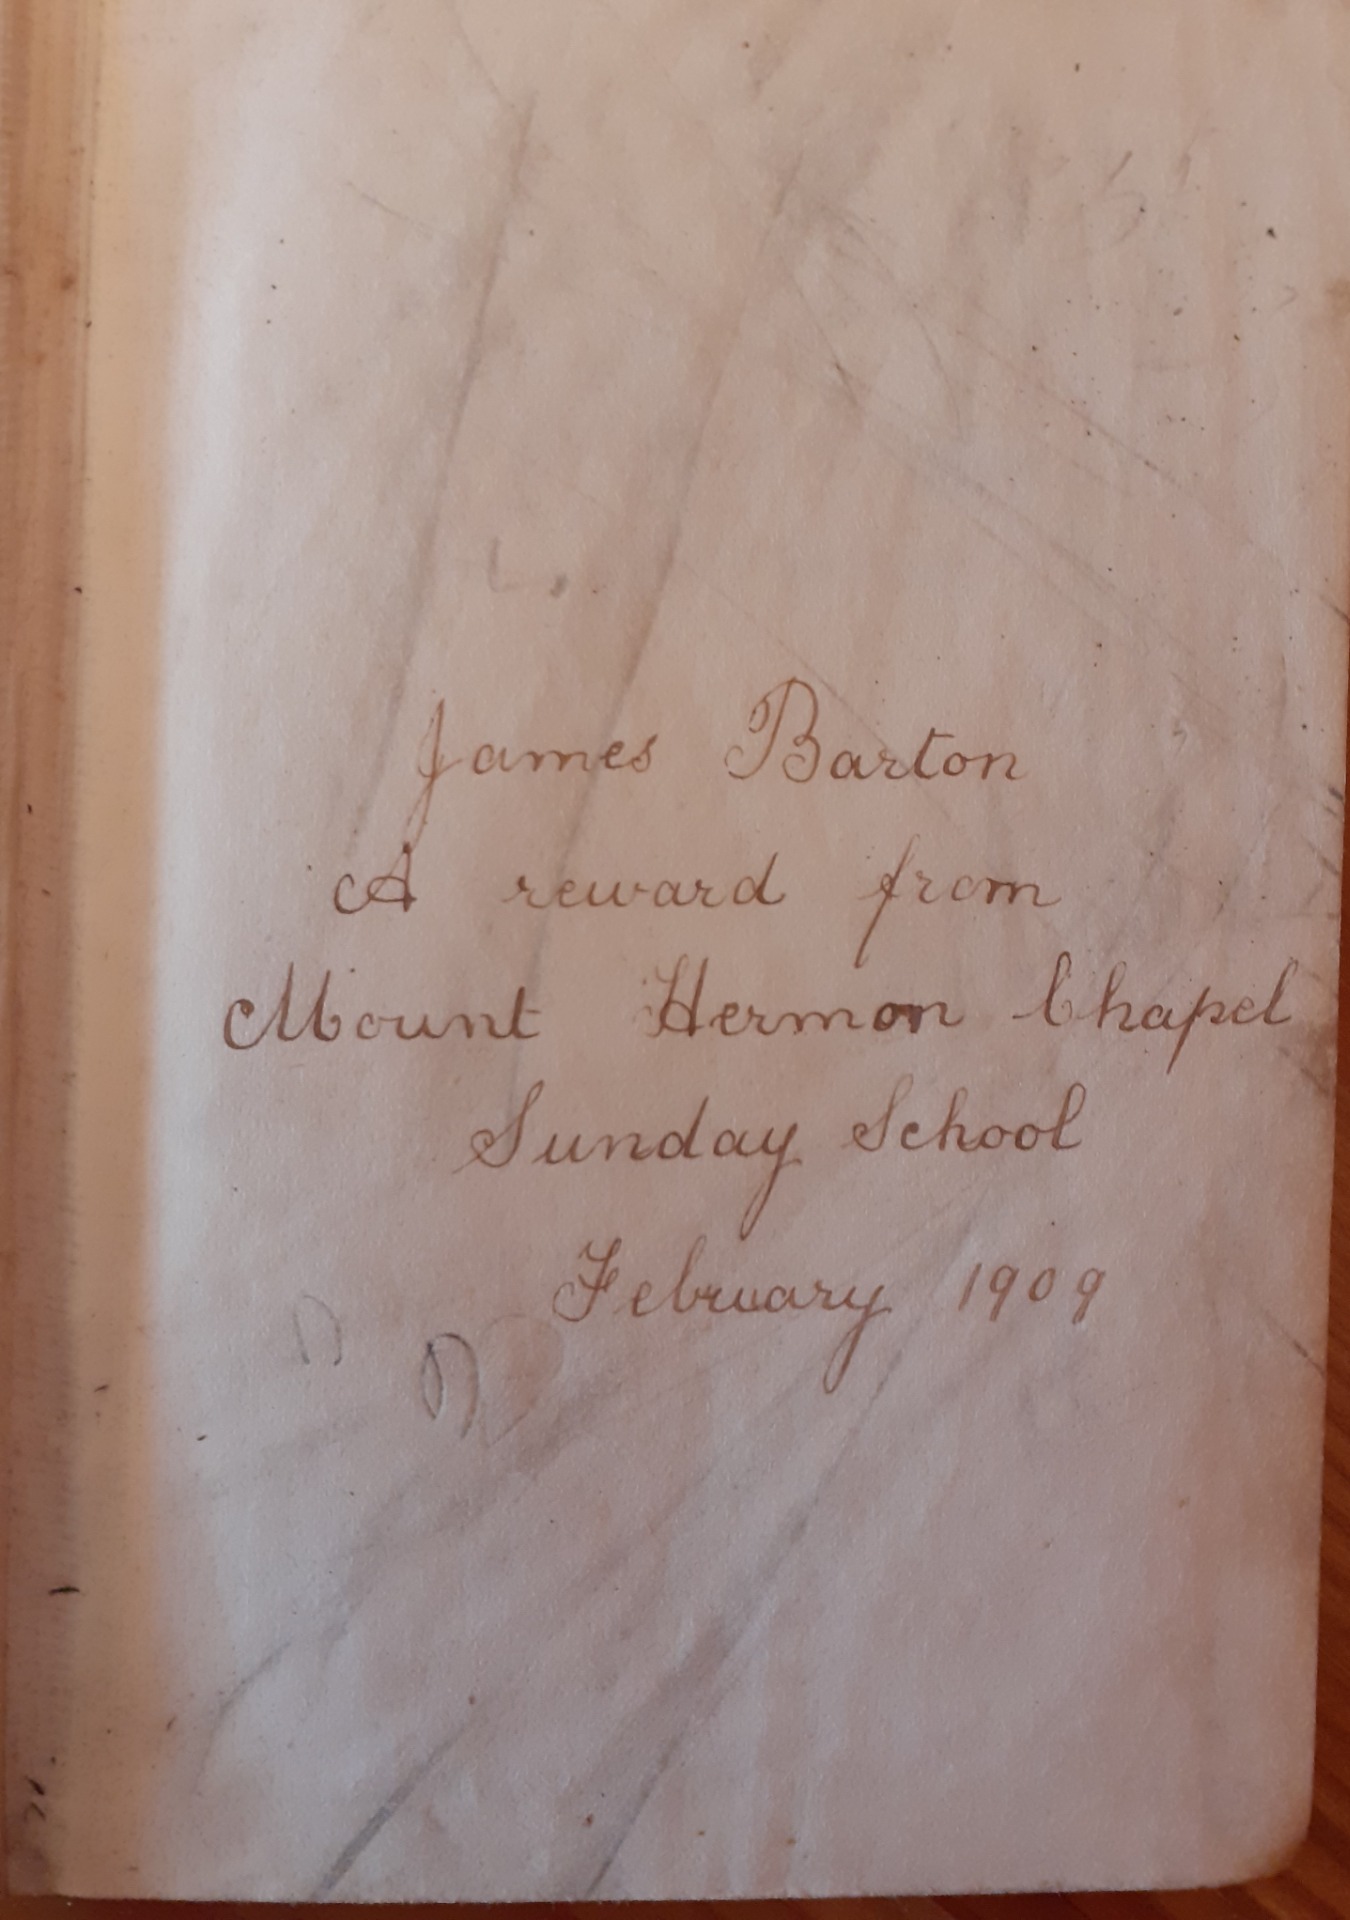 James Barton
A reward from
Mount Hermon Chapel
Sunday School
February 1909